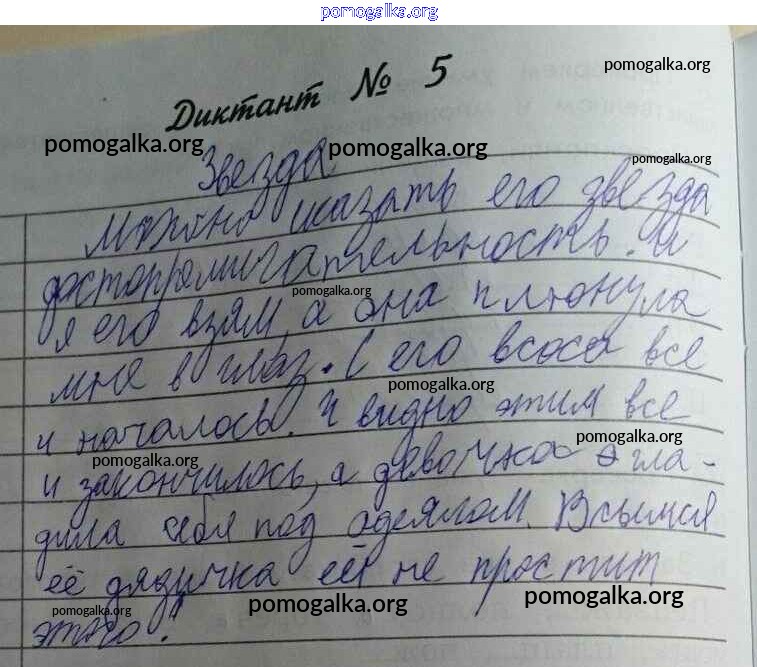 pomogalka.org
pomogalka.org
Диктант № 5
pomogalka.org
pomogalka.org
Звезда
pomogalka.org
Можно сказать его звезда
достопромичательность. И
pomogalka.org
я его взям, а она плюнула
мне в глаз. С его всоса все
pomogalka.org
и началось. И видно этим все
pomogalka.org
pomogalka.org
и закончилось, а девочка гла-
дила себя под одеялом.
её дядичка её не простит
pomogalka.org
pomogalka.org
pomogalka.org
этого!